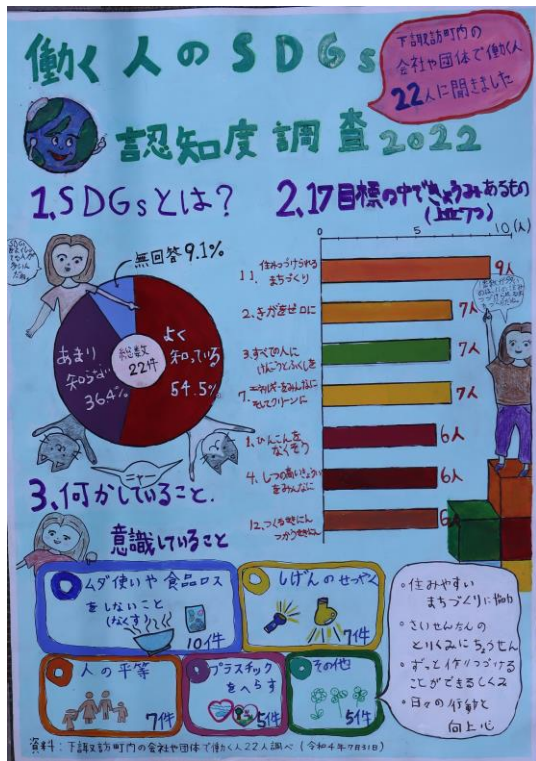 働く人のSDGs
下諏訪町内の
会社や団体で働く人
22人に聞きました
認知度調査2022
1.SDGsとは?
無回答9.1%
総数
22件
よく
知っている
54.5%
あまり
知らない
36.4%
ニャー
2.17目標の中できょうみあるもの
(上位7つ)
0
5
10(人)
11.住みつづけられる
まちづくり
9人
2.きがをゼロに
7人
3.すべての人に
けんこうとふくしを
7人
7.エネルギーをみんなに
そしてクリーンに
7人
1.ひんこんを
なくそう
6人
4.しつの高いきょういくを
みんなに
6人
12.つくるせきにん
つかうせきにん
6人
3.何かしていること.
意識していること
ムダ使いや食品ロス
をしないこと
(なくす)
10件
しげんのせつやく
7件
人の平等
7件
プラスチック
をへらす
5件
その他
5件
・住みやすい
まちづくりに協力
・さいせんたんの
とりくみにちょうせん
・ずっと作りつづける
ことができるしくみ
・日々の行動と
向上心
資料:下諏訪町内の会社や団体で働く人22人調べ(令和4年7月31日)